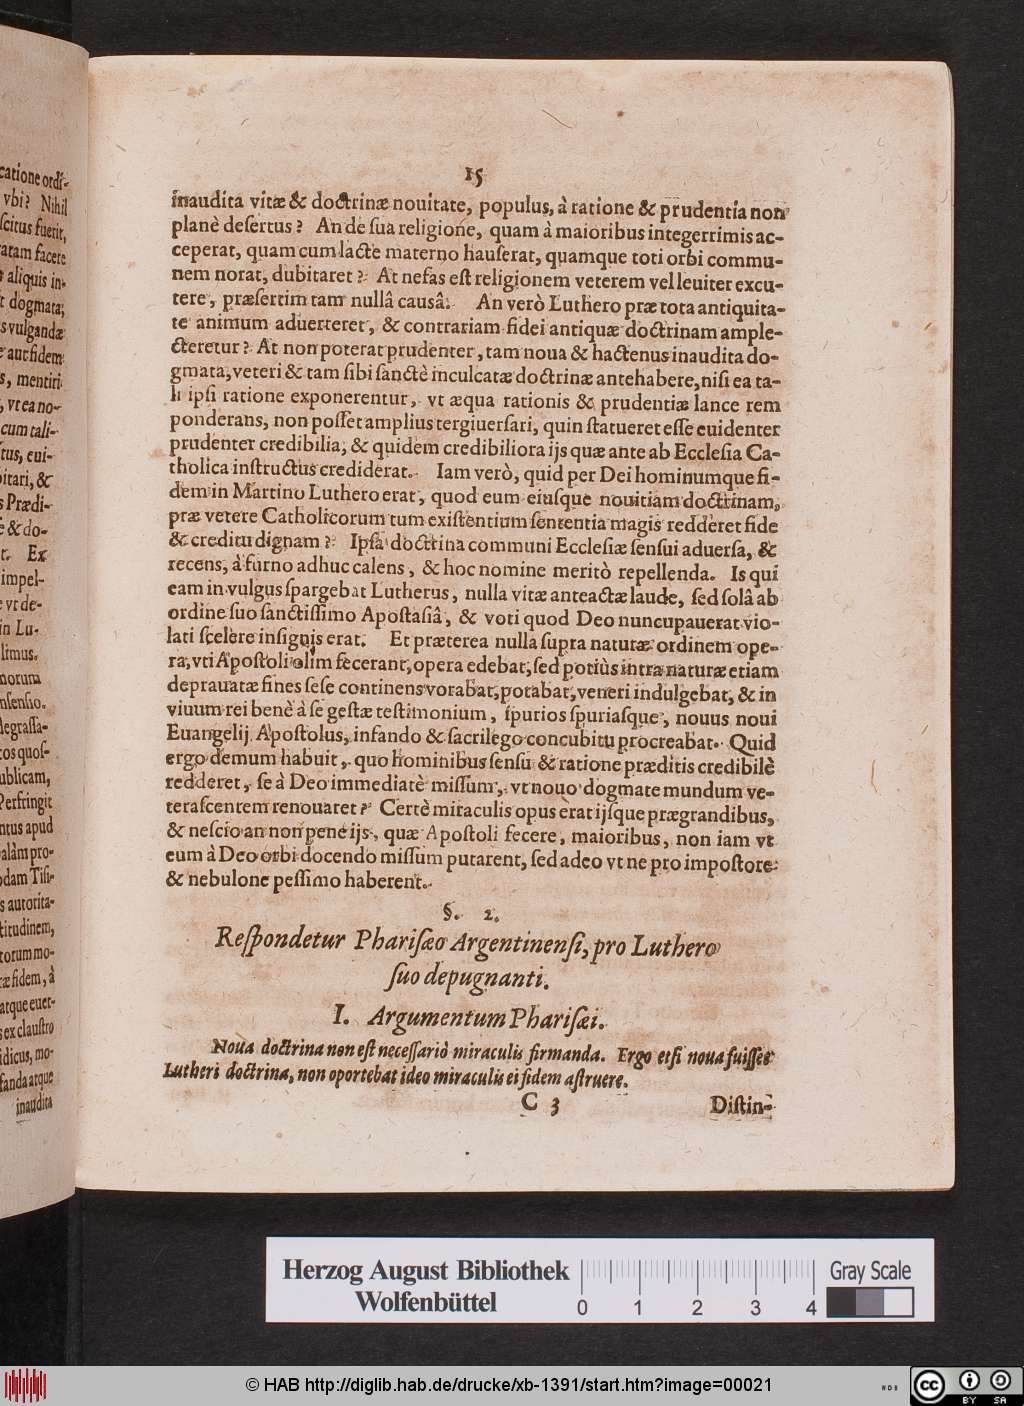 catione ordi-
vbi? Nihil
scitus fuerit,
ratam facere
aliquis in-
dogmata;
s vulgandæ
aut fidem
s, mentiri
, vt ea no-
cum tali-
tus, eui-
pitari, &
s Prædi-
& do-
t. Ex
impel-
vt de-
in Lu-
limus.
norum
nsensio.
legrassa-
cos quos-
ublicam,
Perstringit
ntus apud
alàm pro-
odam Tisi-
s autorita-
titudinem,
torum mo-
ræ fidem, à
atque euer-
s ex claustro
idicus, mo-
fanda atque
inaudita
15
inaudita vitæ & doctrinæ nouitate, populus, à ratione & prudentia non
planè desertus? An de sua religione, quam à maioribus integerrimis ac-
ceperat, quam cum lacte materno hauserat, quamque toti orbi commu-
nem norat, dubitaret? At nefas est religionem veterem vel leuiter excu-
tere, præsertim tam nullâ causâ. An verò Luthero præ tota antiquita-
te animum aduerteret, & contrariam fidei antiquæ doctrinam ample-
cteretur? At non poterat prudenter, tam noua & hactenus inaudita do-
gmata, veteri & tam sibi sanctè inculcatæ doctrinæ antehabere, nisi ea ta-
li ipsi ratione exponerentur, vt æqua rationis & prudentiæ lance rem
ponderans, non posset amplius tergiuersari, quin statueret esse euidenter
prudenter credibilia, & quidem credibiliora ijs quæ ante ab Ecclesia Ca-
tholica instructus crediderat. Iam verò, quid per Dei hominumque fi-
dem in Martino Luthero erat, quod eum eiusque nouitiam doctrinam,
præ vetere Catholicorum tum existentium sententia magis redderet fide
& creditu dignam? Ipsa doctrina communi Ecclesiæ sensui aduersa, &
recens, à furno adhuc calens, & hoc nomine meritò repellenda. Is qui
eam in vulgus spargebat Lutherus, nulla vitæ anteactæ laude, sed solâ ab
ordine suo sanctissimo Apostasiâ, & voti quod Deo nuncupauerat vio-
lati scelere insignis erat. Et præterea nulla supra naturæ ordinem ope-
ra, vti Apostoli olim fecerant, opera edebat, sed potiùs intra naturæ etiam
deprauatæ fines sese continens vorabat, potabat, veneri indulgebat, & in
viuum rei benè à se gestæ testimonium, spurios spuriasque, nouus noui
Euangelij Apostolus, infando & sacrilego concubitu procreabat. Quid
ergo demum habuit, quo hominibus sensu & ratione præditis credibilè
redderet, se à Deo immediatè missum, vt nouo dogmate mundum ve-
terascentem renouaret? Certè miraculis opus erat ijsque prægrandibus,
& nescio an non pene ijs, quæ Apostoli fecere, maioribus, non iam vt
eum à Deo orbi docendo missum putarent, sed adeo vt ne pro impostore
& nebulone pessimo haberent.
§. 2.
Respondetur Pharisæo Argentinensi, pro Luthero
suo depugnanti.
I. Argumentum Pharisæi.
Noua doctrina non est necessariò miraculis firmanda. Ergo etsi noua fuisset
Lutheri doctrina, non oportebat ideo miraculis ei fidem astruere.
C 3 Distin-
Herzog August Bibliothek
Wolfenbüttel
0 1 2 3 4
Gray Scale
© HAB http://diglib.hab.de/drucke/xb-1391/start.htm?image=00021
cc BY SA